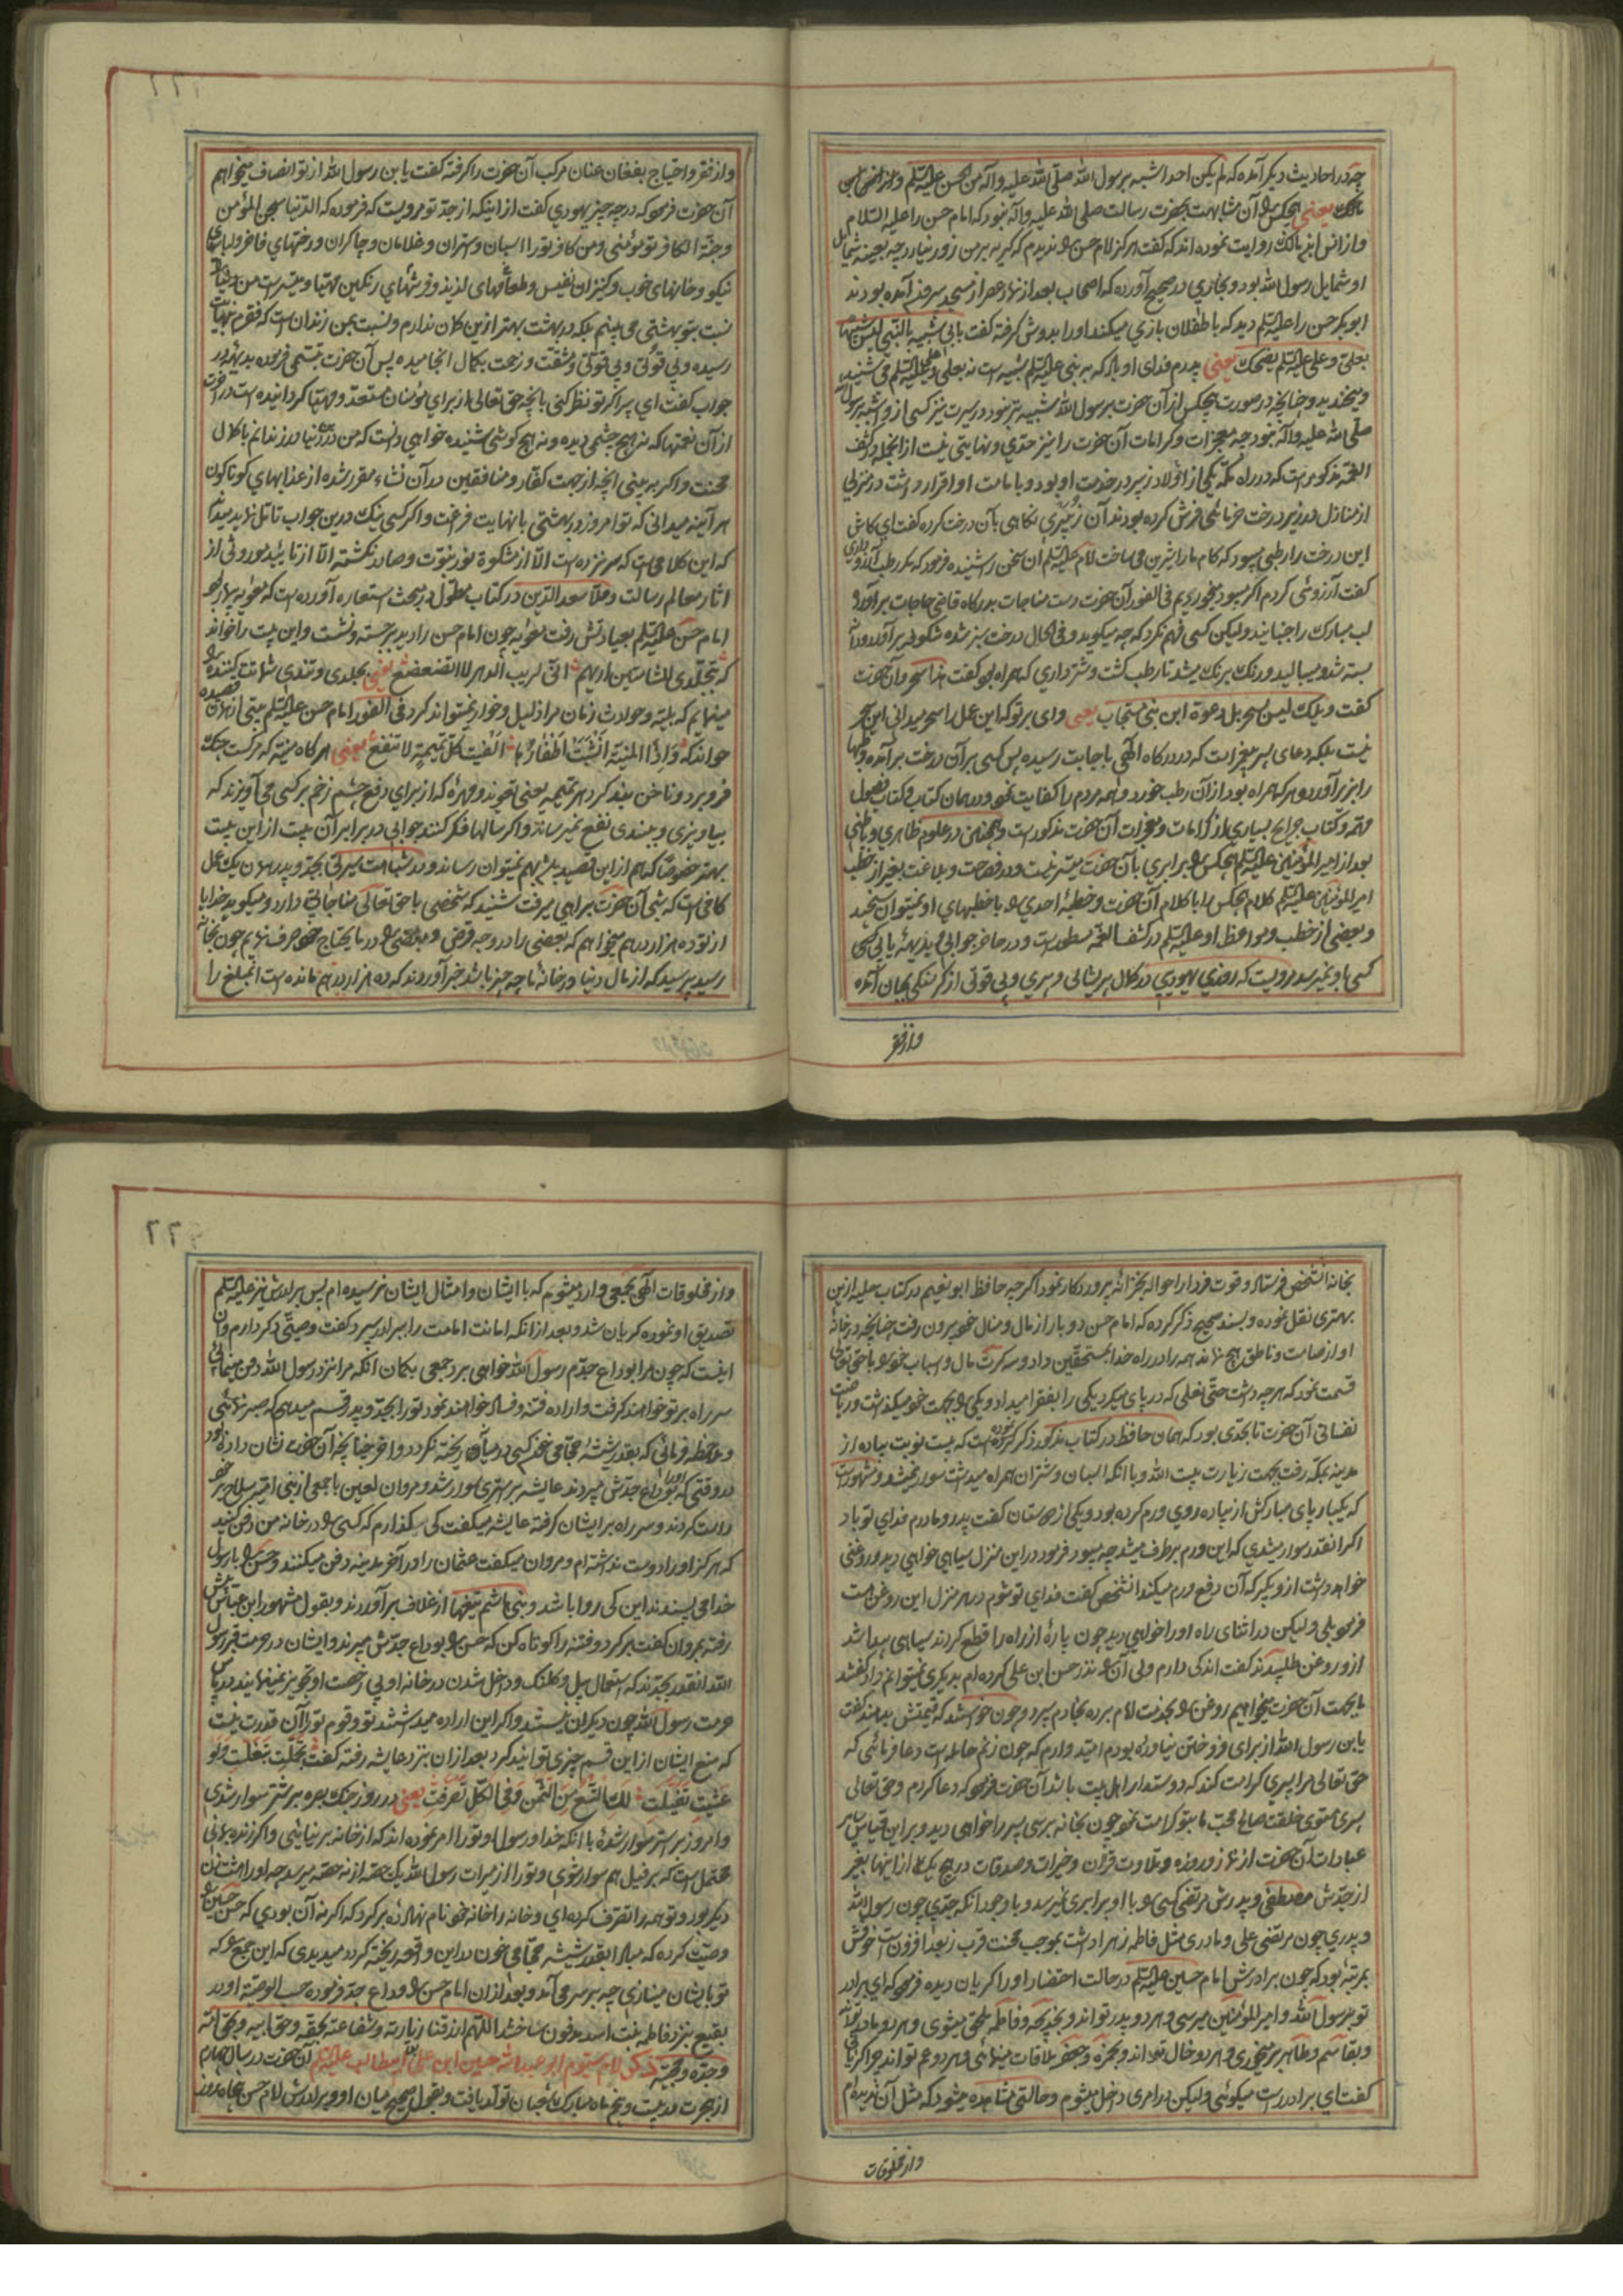 چه در احادیث دیگر آمده که لم یکن احدا شبه برسول الله صلی الله علیه وآله من الحسن علیه السلم
یعنی هیچکس را آن مشابهت بحضرت رسالت صلی الله علیه وآله نبود که امام حسن را علیه السلام
و از انس ابن مالک روایت نموده اند که گفت هرگز امام حسن را ندیدم که گریه بر من زور نیاورد چه بعینه شمایل
او شمایل رسول الله بود و بخاری در صحیح آورده که اصحاب بعد از نماز عصر از مسجد بیرون آمده بودند
ابوبکر حسن را علیه السلم دید که با طفلان بازی میکند او را بدوش گرفته گفت بابی شبیه بالنبی لیس شبیها
بعلی و علی علیه السلم یضحک یعنی پدرم فدای او باد که به نبی علیه السلم شبیه است نه بعلی و علی علیه السلم می شنید
و میخندید و چنانچه در صورت هیچکس از آن حضرت برسول الله شبیه تر نبود در سیرت نیز کسی از و اشبه برسول
صلی الله علیه وآله نبود چه معجزات و کرامات آن حضرت را نیز حدی و نهایتی نیست از انجمله در کشف
الغمه مذکور است که در راه مکه یکی از اولاد زبیر در خدمت او بود و بامامت او اقرار داشت در منزلی
از منازل در زیر درخت خرمائی فرش کرده بودند آن زبیری نگاهی بآن درخت کرده گفت ای کاش
این درخت را رطبی میبود که کام ما را شیرین می ساخت امام علیه السلم آن سخن را شنیده فرمود که مگر رطب آرزو داری
گفت آرزوئی کردم اگر میبود میخوردیم فی الفور آن حضرت دست مناجات بدرگاه قاضی حاجات برآورد و
لب مبارک را جنبانید ولیکن کسی فهم نکرد که چه میگوید و فی الحال درخت سبز شده شکوفه برآورد و دانه
بسته شد و میبالید و رنگ برنگ میشد تا رطب گشت و شترداری که همراه بود گفت هذا سحر و آن حضرت
گفت ویلک لیس بسحر بل دعوة ابن نبی مستجاب یعنی وای بر تو که این عمل را سحر میدانی این سحر
نیست بلکه دعای پسر پیغمبر است که در درگاه الهی باجابت رسیده پس کسی بر آن درخت برآمده رطبها
را بزیر آورد و هر که همراه بود از آن رطب خورد و همه مردم را کفایت نمود و در همان کتاب و کتاب فصول
مهمه و کتاب جرایح بسیاری از کرامات و معجزات آن حضرت مذکور است و همچنین در علوم ظاهری و باطنی
بعد از امیر المؤمنین علیه السلم هیچکس را برابری بآن حضرت میسر نیست و در فصاحت و بلاغت بغیر از خطب
امیر المؤمنین علیه السلم کلام هیچکس را با کلام آن حضرت و خطبه احدی را با خطبهای او نمیتوان سنجید
و بعضی از خطب و مواعظ او علیه السلم در کشف الغمه مسطور است و در حاضر جوابی و بدیهه یابی کسی
کسی باو نمیرسد مرویست که روزی یهودی در کمال پریشانی و پیری و بی قوتی از گرسنگی بجان آمده
واز فقر
و از فقر و احتیاج بفغان عنان مرکب آن حضرت را گرفته گفت یابن رسول الله از تو انصاف میخواهم
آن حضرت فرمود که در چه چیز یهودی گفت از اینکه از جد تو مرویست که فرموده که الدنیا سجن المؤمن
و جنة الکافر تو مؤمنی و من کافر تو را اسبان و شتران و غلامان و چاکران و رختهای فاخر و لباسهای
نیکو و خانهای خوب و کنیزان نفیس و طعامهای لذیذ و فرشهای رنگین مهیا و میسر است من دنیا را
نسبت بتو بهشتی می بینم بلکه در بهشت بهتر ازین گمان ندارم و نسبت بمن زندان است که فقرم بنهایت
رسیده و بی قوتی و بی قوتی و مشقت و زحمت بکمال انجامیده پس آن حضرت تبسمی فرموده بدیهه در
جواب گفت ای پیر اگر تو نظر کنی بانچه حق تعالی از برای مؤمنان مستعد و مهیا گردانیده است در آخرت
از آن نعمتها که نه هیچ چشمی دیده و نه هیچ گوشی شنیده خواهی دانست که من درین دنیا در زندانم با کمال
محنت و اگر به بینی انچه از جهت کفار و منافقین در آن نشاء مقرر شده از عذابهای گوناگون
هر آینه میدانی که تو امروز در بهشتی با نهایت فراغت و اگر کسی نیک درین جواب تامل نماید میداند
که این کلامی است که سر نزده است الا از مشکوة نور نبوت و صادر نگشته الا از تائید مورونی از
اثار معالم رسالت و ملا سعد الدین در کتاب مطول در مبحث استعاره آورده است که معویه بیمار بود
امام حسن علیه السلم بعیادتش رفت معویه چون امام حسن را دید برجسته و نشست و این بیت را خواند
که بتجلدی للشامتین اریهم انی لریب الدهر لا اتضعضع یعنی بجلدی و تندی شماتت کننده را
مینمایم که بلیه و حوادث زمان مرا ذلیل و خوار نمیتواند کرد فی الفور امام حسن علیه السلم بیتی از همان قصیده
خواند که وَاذا المنیّة اَنشبَت اَظفارَها الفیتَ کلّ تمیمةٍ لا تنفع یعنی هر گاه منیه که مرگست چنگ
فرو برد و ناخن بند کرد هر تمیمه یعنی تعویذ و مهره که از برای دفع چشم زخم بر کسی می آویزند که
بیاویزی و ببندی نفع نمیرساند و اگر سالها فکر کنند جوابی در برابر آن بیت از این بیت
بهتر خصوصا که هم از این قصیده باشد بهم نمیتوان رساند و در شباهت سیرتی بجد و پدر همان یک عمل
کافی است که شبی آن حضرت براهی میرفت شنید که شخصی با حق تعالی مناجاتی دارد و میگوید خدایا
از تو ده هزار درهم میخواهم که بعضی را در وجه قرض و بعضی را در مایحتاج خود صرف نمایم چون بخانه
رسید پرسید که از مال دنیا در خانه ما چه چیز باشد خبر آوردند که ده هزار درهم مانده است انمبلغ را
بخانه انشخص فرستاد و قوت فردا را حواله بخزانه پروردگار نمود اگر چه حافظ ابو نعیم در کتاب حلیه ازین
بهتری نقل نموده و بسند صحیح ذکر کرده که امام حسن دو بار از مال و منال خود بیرون رفت چنانچه در خانه
او از صامت و ناطق هیچ نماند همه را در راه خدا بمستحقین داد و سه کرت مال و اسباب خود را با حق تعالی
قسمت نمود که هر چه داشت حتی نعلی که در پای میکرد یکی را بفقرا میداد و یکی را بجهت خود میگذاشت و ریاضت
نفسانی آن حضرت تا بحدی بود که همان حافظ در کتاب مذکور ذکر کرده است که بیست نوبت پیاده از
مدینه بمکه رفت بجهت زیارت بیت الله و با انکه اسبان و شتران همراه میداشت سوار نمیشد و مشهور است
که یکبار پای مبارکش از پیاده روی ورم کرده بود و یکی از دوستان گفت پدر و مادرم فدای تو باد
اگر انقدر سوار میشدی که این ورم برطرف میشد چه میبود فرمود در این منزل سیاهی خواهی دید و روغنی
خواهد داشت از و بگیر که آن دفع ورم میکند انشخص گفت فدای تو شوم در هر منزل این روغن هست
فرمود بلی ولیکن در اثنای راه او را خواهی دید چون پاره از راه را قطع کردند سیاهی پیدا شد
از و روغن طلبیدند گفت اندکی دارم ولی آن را نذر حسن ابن علی کرده ام بدیگری نمیتوانم داد گفتند
ما بجهت آن حضرت میخواهیم روغن را بخدمت امام برده بخادم سپرد و چون خواستند که قیمتش بدهند گفت
یابن رسول الله از برای فروختن نیاورده بودم امید وارم که چون زنم حامله است دعا فرمائی که
حق تعالی مرا پسری کرامت کند که دوستدار اهل بیت باشد آن حضرت فرمود که دعا کردم و حق تعالی
پسری مستوی خلقت صالح محب ما بتو کرامت نمود چون بخانه برسی پسر را خواهی دید و براین قیاس سایر
عبادات آن حضرت از نماز و روزه و تلاوت قرآن و خیرات و صدقات در هیچ یک از اینها بغیر
از جدش مصطفی و پدرش مرتضی کسی را با او برابری نمیرسد و با وجود انکه جدی چون رسول الله
و پدری چون مرتضی علی و مادری مثل فاطمه زهرا داشت بموجب محنت قرب زبعد افزونست خوفش
بمرتبه بود که چون برادرش امام حسین علیه السلم در حالت احتضار او را گریان دیده فرمود که ای برادر
تو برسول الله و امیر المؤمنین میرسی و هر دو پدر تو اند و بخدیجه و فاطمه ملحق میشوی و هر دو مادر تواند
و بقاسم و طاهر بر میخوری و هر دو خال تو اند و بحمزه و جعفر ملاقات مینمائی و هر دو عم تو اند چرا گریانی
گفت ای برادر راست میگوئی ولیکن در امری داخل میشوم و حالتی مشاهده میشود که مثل آن ندیده ام
واز مخلوقات
۹۶۶
و از مخلوقات الهی بجمعی وارد میشوم که با ایشان و امثال ایشان نرسیده ام پس برادرش نیز علیه السلم
تصدیق او نموده گریان شد و بعد از انکه امانت امامت را ببرادر سپرد گفت وصیتی دیگر دارم و آن
اینست که چون مرا بوداع جدم رسول الله خواهی برد جمعی بگمان انکه مرا نزد رسول الله دفن مینمائی
سر راه بر تو خواهند گرفت و اراده فتنه و فساد خواهند نمود تو را بجد و پدر قسم میدهم که صبر نمائی
و ملاحظه فرمائی که بقدر شیشه حجامی خون کسی در میان ریخته نگردد و اخر چنانچه آن حضرت نشان داده بود
در وقتی که او را بوداع جدش میبردند عایشه بر استری سوار شد و مروان لعین با جمعی از بنی امیه سلاح بر خود
راست کردند و سر راه بر ایشان گرفته عایشه میگفت کی میگذارم که کسی را در خانه من دفن کنید
که هرگز او را دوست نداشته ام و مروان میگفت عثمان را در آخر مدینه دفن میکنند و حسن را با رسول
خدا می پسندند این کی روا باشد و بنی هاشم تیغها از غلاف برآوردند و بقول مشهور ابن عباس پیش
رفته بمروان گفت برگرد و فتنه را کوتاه کن که حسن را بوداع جدش میبرند و ایشان در حرمت قبر رسول
الله انقدر بجدند که استعمال بیل و کلنگ و داخل شدن در خانه او بی رخصت او تجویز نمینمایند در باب
حرمت رسول الله چون دیگران نیستند و اگر این اراده میداشتند تو و قوم تو را آن قدرت نیست
که منع ایشان از این قسم چیزی توانید کرد بعد از ان بنزد عایشه رفته گفت تجملتِ تبغلتِ ولو
عشتِ تفیلتِ لکِ التسع من الثمن و فی الکل تصرفتِ یعنی در روز جنگ بصره بر شتر سوار شدی
و امروز بر استر سوار شده با انکه خدا و رسول او تو را امر نموده اند که از خانه بر نیائی و اگر زنده بمانی
محتمل است که بر فیل هم سوار شوی و تو را از میراث رسول الله یک حصه از نه حصه میرسد چه او را هشت زن
دیگر بود و تو همه را تصرف کرده ای و خانه را خانه خود نام نهاده برگرد که اگر نه آن بودی که حسن حسین را
وصیت کرده که مبادا بقدر شیشه حجامی خون در این واقعه ریخته گردد میدیدی که این جمع را که
تو بایشان مینازی چه بر سر می آمد و بعد از ان امام حسن را وداع جد فرموده حسب الوصیة او در
بقیع بنزد فاطمه بنت اسد مدفون ساختند اللهم ارزقنا زیارته و شفاعته بحقه و حق ابیه و بحق امه
وجده و محبیه ذکر امام سیوم ابو عبدالله حسین ابن علی ابیطالب علیه السلم آن حضرت در سال چهارم
از هجرت در بیست و پنجم ماه مبارک شعبان تولد یافت و بقول صحیح میان او و برادرش امام حسن پنجاه روز